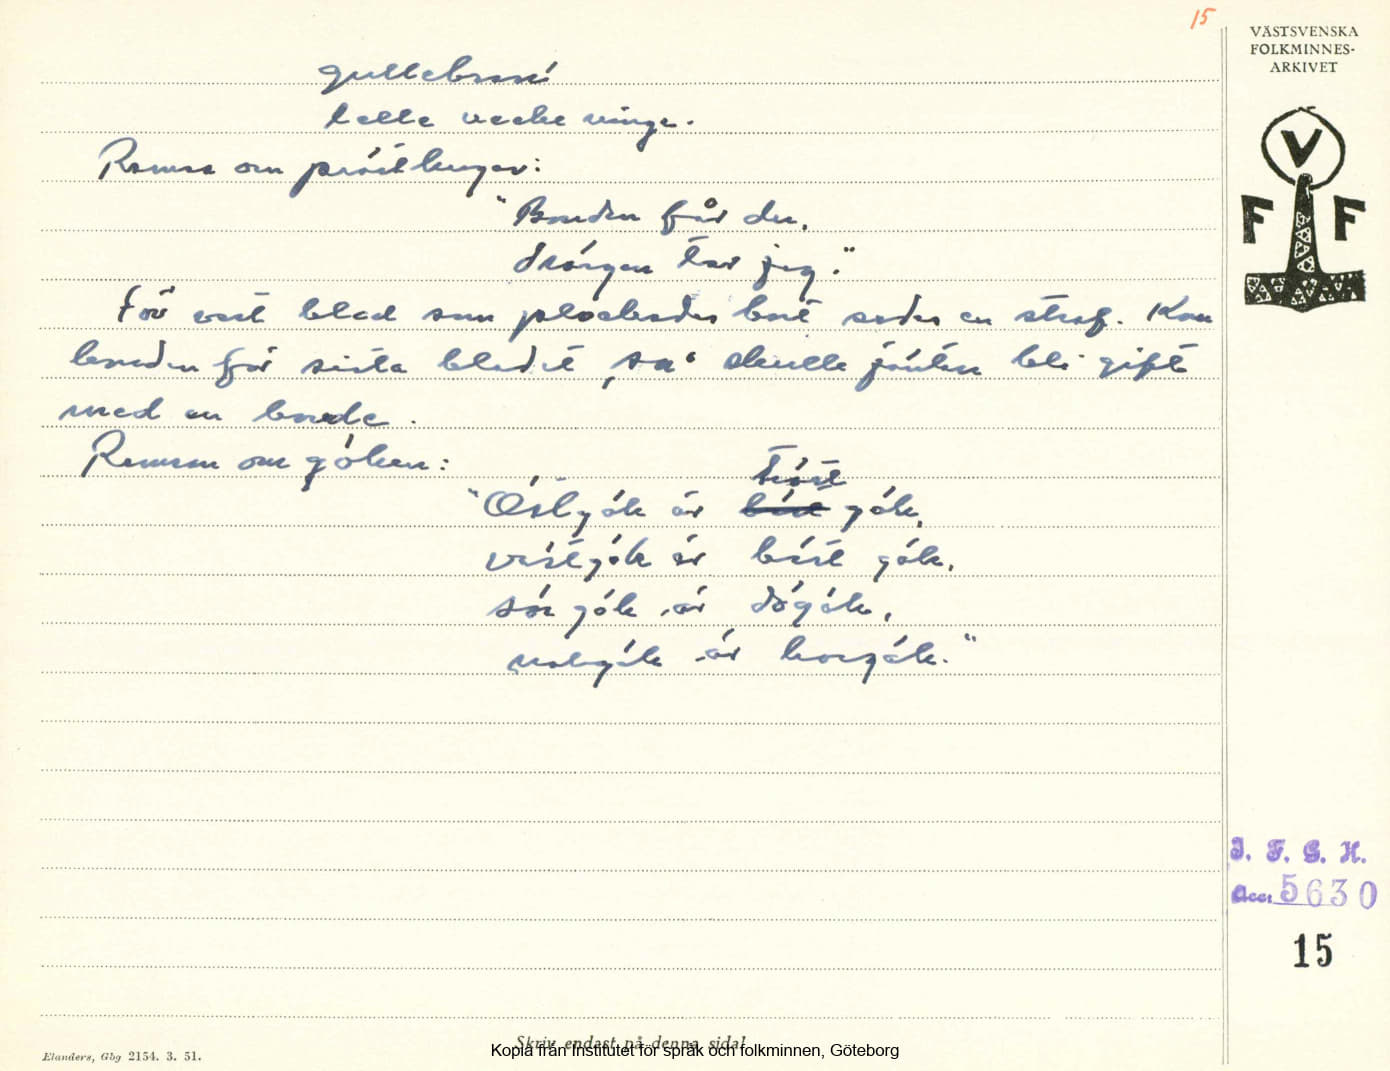 15
VÄSTSVENSKA
FOLKMINNES-
ARKIVET
V
F F
gullebrun
lelle vecke vinge.
Ramsa om prästkragen:
"Bonden får du,
drängen tar jag."
För vart blad som plockades bort sades en straf. Kom
bonden för sista bladet, så skulle jäntan bli gift
med en bonde.
Ramsan om göken:
tröst
"Östgök är bäst gök,
västgök är bäst gök,
sörgök är dögök,
norgök är horgök."
I. F. G. H.
Acc. 5630
15
Elanders, Gbg 2154. 3. 51.
Skriv endast på denna sida!
Kopia från Institutet för språk och folkminnen, Göteborg